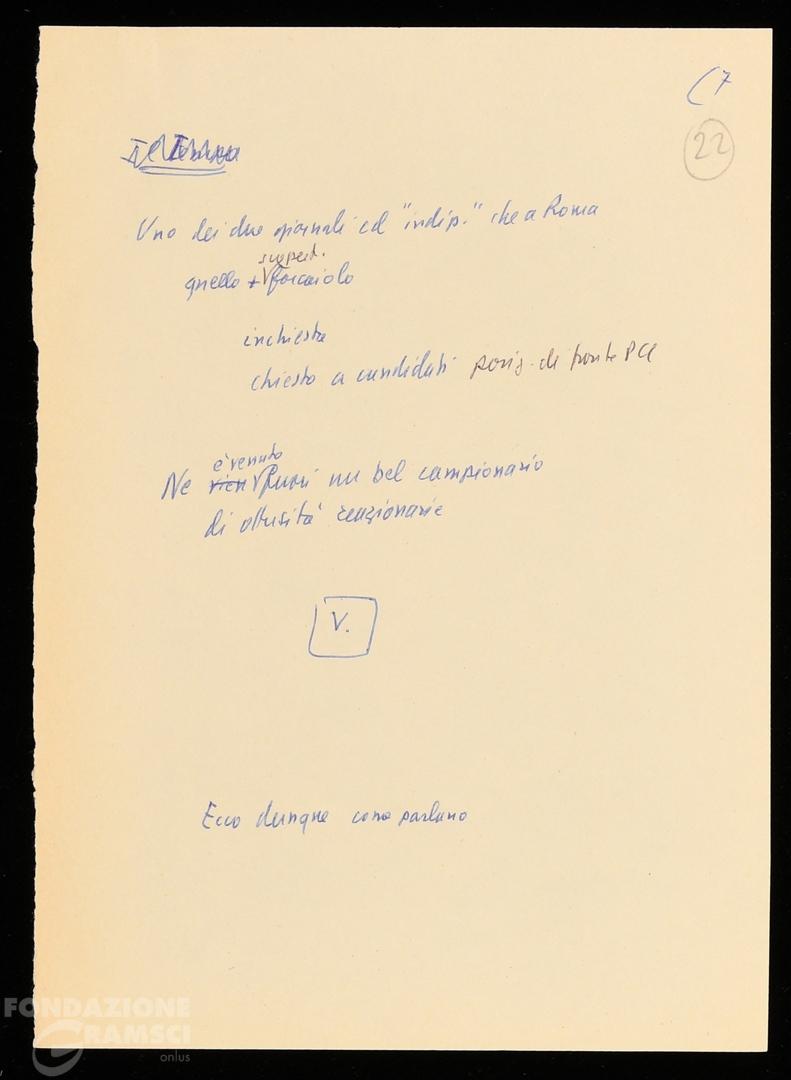 (7
22
Il Tempo
Uno dei due giornali cd "indip." che a Roma
scopert.
quello + forcaiolo
inchiesta
chiesto a candidati posiz. di fronte PCI
è venuto
Ne vien fuori un bel campionario
di ottusità reazionarie
V.
Ecco dunque come parlano
FONDAZIONE
GRAMSCI
onlus